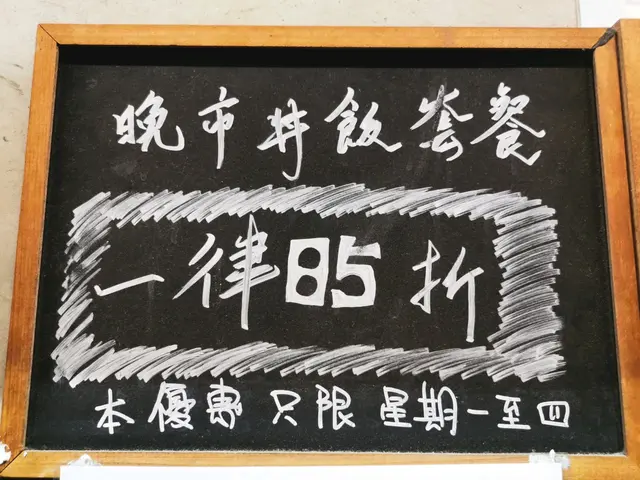 晚市丼飯套餐
一律85折
本優惠 只限 星期一至四